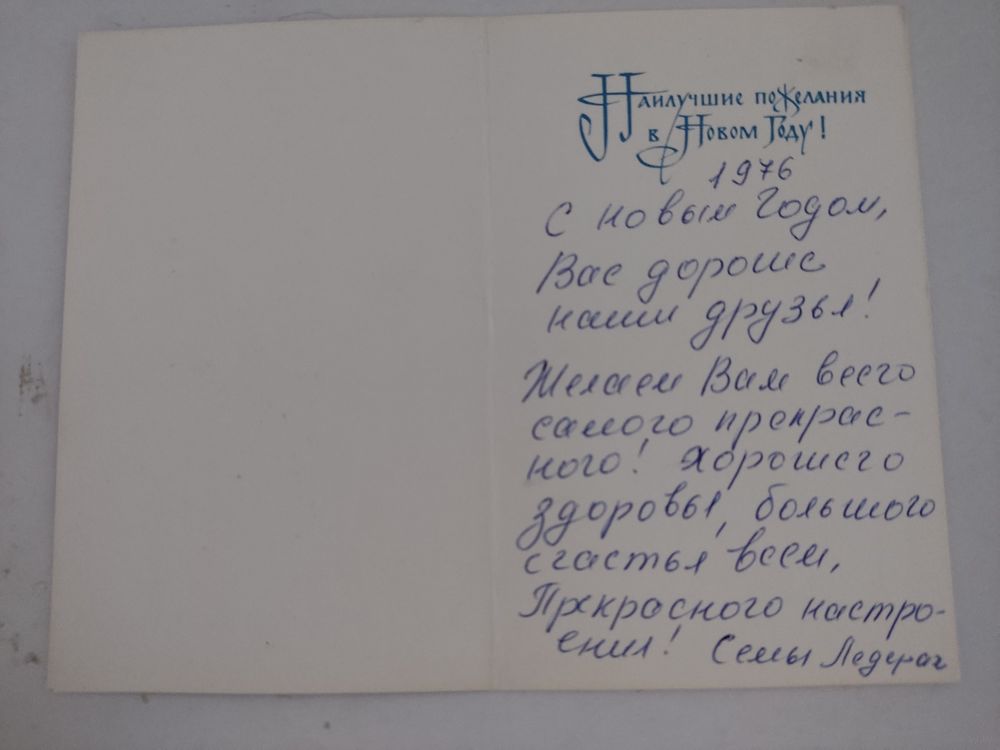 Наилучшие пожелания
в Новом Году!
1976
С новым Годом,
Вас дорогие
наши друзья!
Желаем Вам всего
самого прекрас-
ного! Хорошего
здоровья, большого
счастья всем,
Прекрасного настро-
ения! Семья